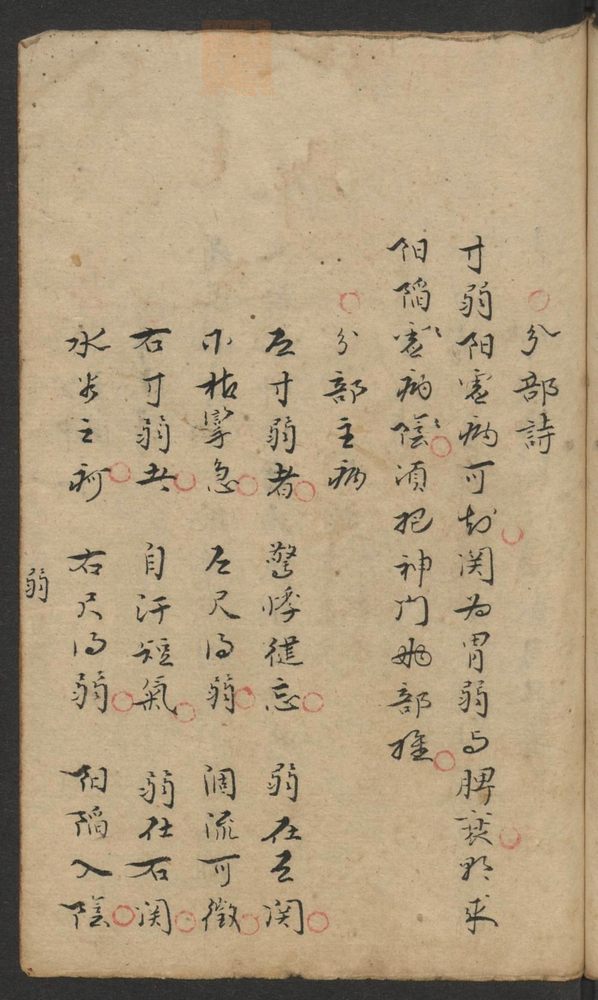 分部詩
寸弱阳虚病可知関為胃弱与脾衰欲求
阳陷虚病陰須把神门兩部推
分部主病
左寸弱者 驚悸健忘 弱在左関
木枯攣急 左尺得弱 涸流可徵
右寸弱共 自汗短氣 弱在右関
水谷之疴 右尺得弱 阳陷入陰
弱